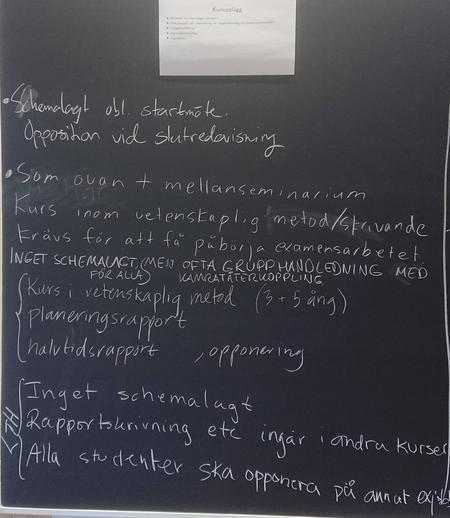 Kursupplägg
• Schemalagt obl. startmöte.
Opposition vid slutredovisning
• Som ovan + mellanseminarium
Kurs inom vetenskaplig metod/skrivande
krävs för att få påbörja examensarbetet
INGET SCHEMALAGT (MEN OFTA GRUPPHANDLEDNING MED
FÖR ALLA) KAMRATÅTERKOPPLING
Kurs i vetenskaplig metod (3+5 ång)
planeringsrapport
halvtidsrapport , opponering
LTH
Inget schemalagt
Rapportskrivning etc ingår i andra kurser
Alla studenter ska opponera på annat exjobb